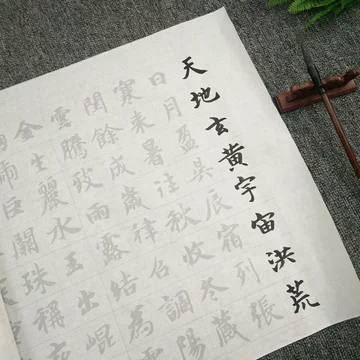 天地玄黄宇宙洪荒
日月盈昃辰宿列張
寒来暑往秋收冬藏
閏餘成歲律召調陽
雲騰致雨露結為
金生麗水玉出崐
巨闕珠稱夜